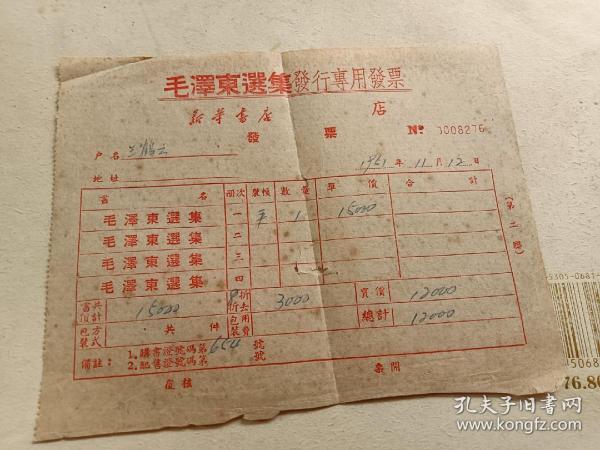 毛澤東選集發行專用發票
新華書店 店
發 票 № 0008276
户名
地址 1951年11月12日
書 名 開次 裝幀 數 量 單 價 合 計
毛澤東選集 一 平 1 15000
毛澤東選集 二
毛澤東選集 三
毛澤東選集 四
共計 15000 8折 折去 3000 實價 12000
包裝方式 共 件 包裝用費 總計 12000
備註： 1.購書證號碼第 654 號
2.配售證號碼第 號
復核 開票
(第二聯)
5305-0681
5068
76.80
孔夫子旧书网
www.kongfz.com